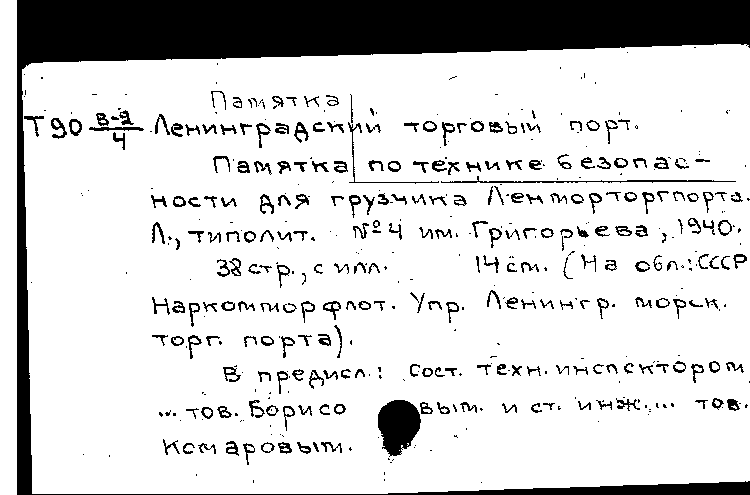 Памятка
Т90 В-9/4 Ленинградский торговый порт.
Памятка по технике безопас-
ности для грузчика Ленморторгпорта.
Л., типолит. №4 им. Григорьева, 1940.
38 стр., с илл. 14 см. (На обл.: СССР
Наркомморфлот. Упр. Ленингр. морск.
торг. порта).
В предисл.: Сост. техн. инспектором
... тов. Борисовым. и ст. инж.... тов.
Комаровым.